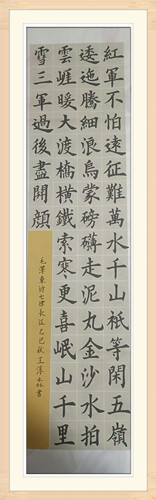 紅軍不怕遠征難萬水千山祇等閑五嶺
逶迤騰細浪烏蒙磅礴走泥丸金沙水拍
雲崕暖大渡橋橫鐵索寒更喜岷山千里
雪三軍過後盡開顏
毛澤東詩七律長征乙巳秋王
書